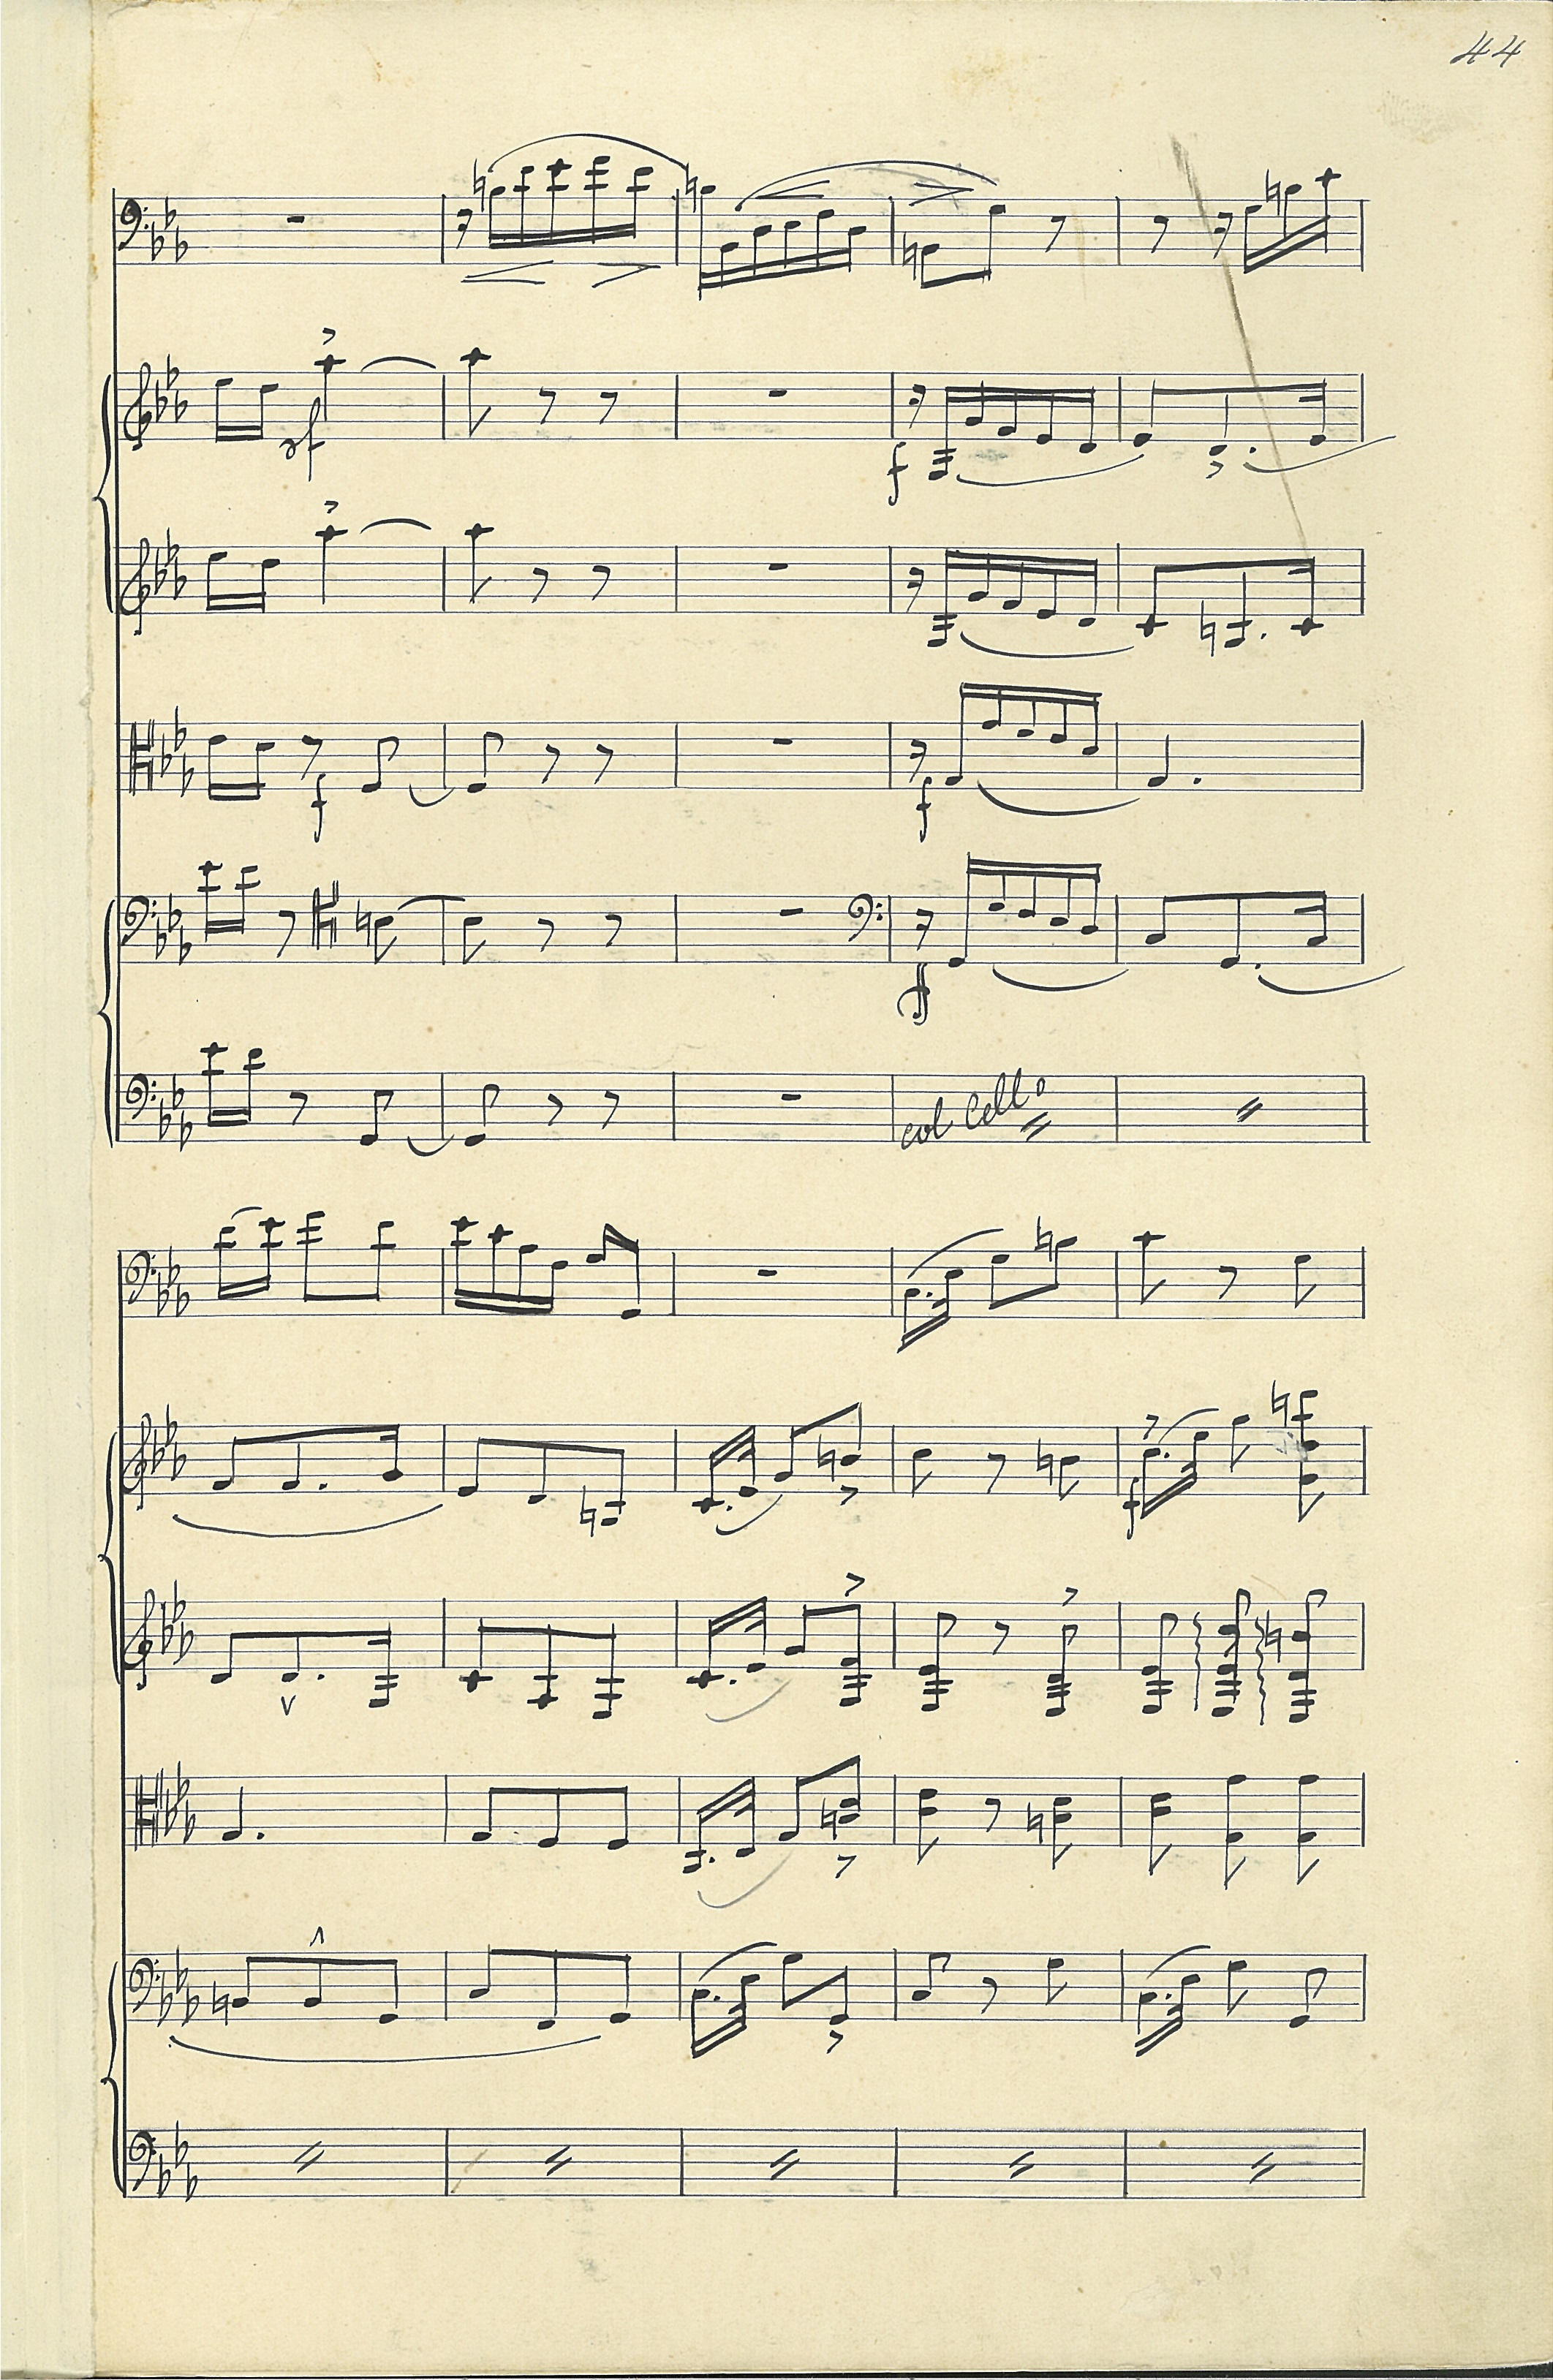 44
sf
f
f
f
f
col Cello
f